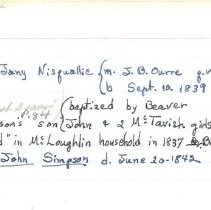 Jany Nisquallie { m. J. B. Ourre q.v
b Sept. 10 1839
p. 84 { baptized by Beaver
son's son { John & 2 McTavish girls
d" in McLoughlin household in 1837
John Simpson d. June 20-1842